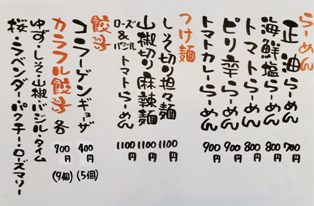 らーめん
正油らーめん 700円
海鮮塩らーめん 800円
トマトらーめん 800円
ピリ辛らーめん 900円
トマトカレーらーめん 900円
つけ麺
しそ切り担々麺 1100円
山椒切り麻辣麺 1100円
ローズ&バジルトマトらーめん 1100円
餃子
コラーゲンギョーザ 400円 (5個)
カラフル餃子 各900円 (9個)
ゆず・しそ・山椒・バジル・タイム
桜・ラベンダー・パクチー・ローズマリー